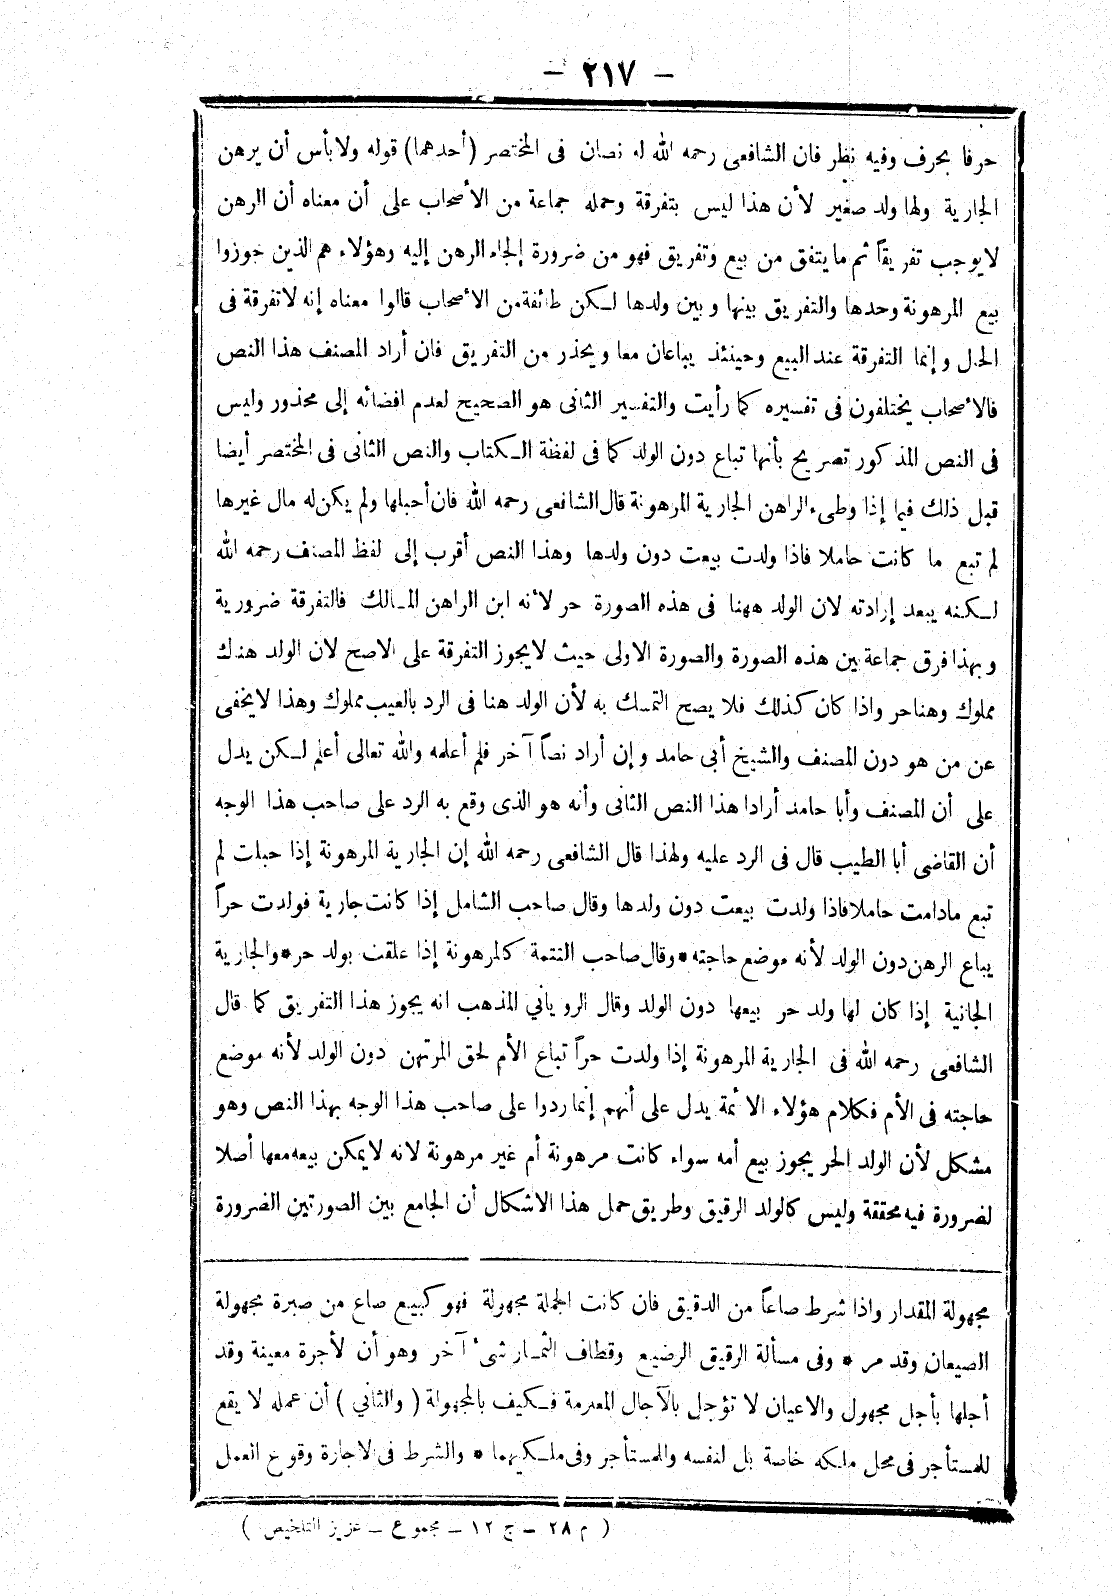 — ٢١٧ —
حرفا بحرف وفيه نظر فان الشافعى رحمه الله له نصان فى المختصر (أحدهما) قوله ولا بأس أن يرهن
الجارية ولها ولد صغير لأن هذا ليس بتفرقة وحمله جماعة من الأصحاب على أن معناه أن الرهن
لا يوجب تفريقاً ثم ما يتفق من بيع وتفريق فهو من ضرورة إلجاء الرهن إليه وهؤلاء هم الذين جوزوا
بيع المرهونة وحدها والتفريق بينها وبين ولدها لكن طائفة من الاصحاب قالوا معناه إنه لا تفرقة فى
الحال وإنما التفرقة عند البيع وحينئذ يباعان معا ويحذر من التفريق فان أراد المصنف هذا النص
فالاصحاب يختلفون فى تفسيره كما رأيت والتفسير الثانى هو الصحيح لعدم افضائه إلى محذور وليس
فى النص المذكور تصريح بأنها تباع دون الولد كما فى لفظة الكتاب والنص الثانى فى المختصر أيضا
قبل ذلك فيما إذا وطىء الراهن الجارية المرهونة قال الشافعى رحمه الله فان أحبلها ولم يكن له مال غيرها
لم تبع ما كانت حاملا فاذا ولدت بيعت دون ولدها وهذا النص أقرب إلى لفظ المصنف رحمه الله
لكنه يبعد إرادته لان الولد ههنا فى هذه الصورة حر لأنه ابن الراهن المالك فالتفرقة ضرورية
وبهذا فرق جماعة بين هذه الصورة والصورة الاولى حيث لا يجوز التفرقة على الاصح لان الولد هناك
مملوك وهنا حر واذا كان كذلك فلا يصح التمسك به لأن الولد هنا فى الرد بالعيب مملوك وهذا لا يخفى
عن من هو دون المصنف والشيخ أبى حامد وإن أراد نصاً آخر فلم أعلمه والله تعالى أعلم لكن يدل
على أن المصنف وأبا حامد أرادا هذا النص الثانى وأنه هو الذى وقع به الرد على صاحب هذا الوجه
أن القاضى أبا الطيب قال فى الرد عليه ولهذا قال الشافعى رحمه الله إن الجارية المرهونة إذا حبلت لم
تبع مادامت حاملا فاذا ولدت بيعت دون ولدها وقال صاحب الشامل إذا كانت جارية فولدت حراً
يباع الرهن دون الولد لأنه موضع حاجته * وقال صاحب التتمة كالمرهونة إذا علقت بولد حر * والجارية
الجانية إذا كان لها ولد حر بيعها دون الولد وقال الرويانى المذهب انه يجوز هذا التفريق كما قال
الشافعى رحمه الله فى الجارية المرهونة إذا ولدت حراً تباع الأم لحق المرتهن دون الولد لأنه موضع
حاجته فى الأم فكلام هؤلاء الائمة يدل على أنهم إنما ردوا على صاحب هذا الوجه بهذا النص وهو
مشكل لأن الولد الحر يجوز بيع أمه سواء كانت مرهونة أم غير مرهونة لانه لا يمكن بيعه معها أصلا
لضرورة فيه محققة وليس كالولد الرقيق وطريق حمل هذا الاشكال أن الجامع بين الصورتين الضرورة
مجهولة المقدار واذا شرط صاعاً من الدقيق فان كانت الجملة مجهولة فهو كبيع صاع من صبرة مجهولة
الصيعان وقد مر * وفى مسألة الرقيق الرضيع وقطاف الثمار شىء آخر وهو أن لأجرة معينة وقد
أجلها بأجل مجهول والاعيان لا تؤجل بالآجال المعلومة فكيف بالمجهولة (والثاني) أن عمله لا يقع
للمستأجر فى محل ملكه خاصة بل لنفسه والمستأجر وفى ملكيهما * والشرط فى الاجازة وقوع العمل
(م ٢٨ — ج ١٢ — مجموع — عزيز التلخيص)